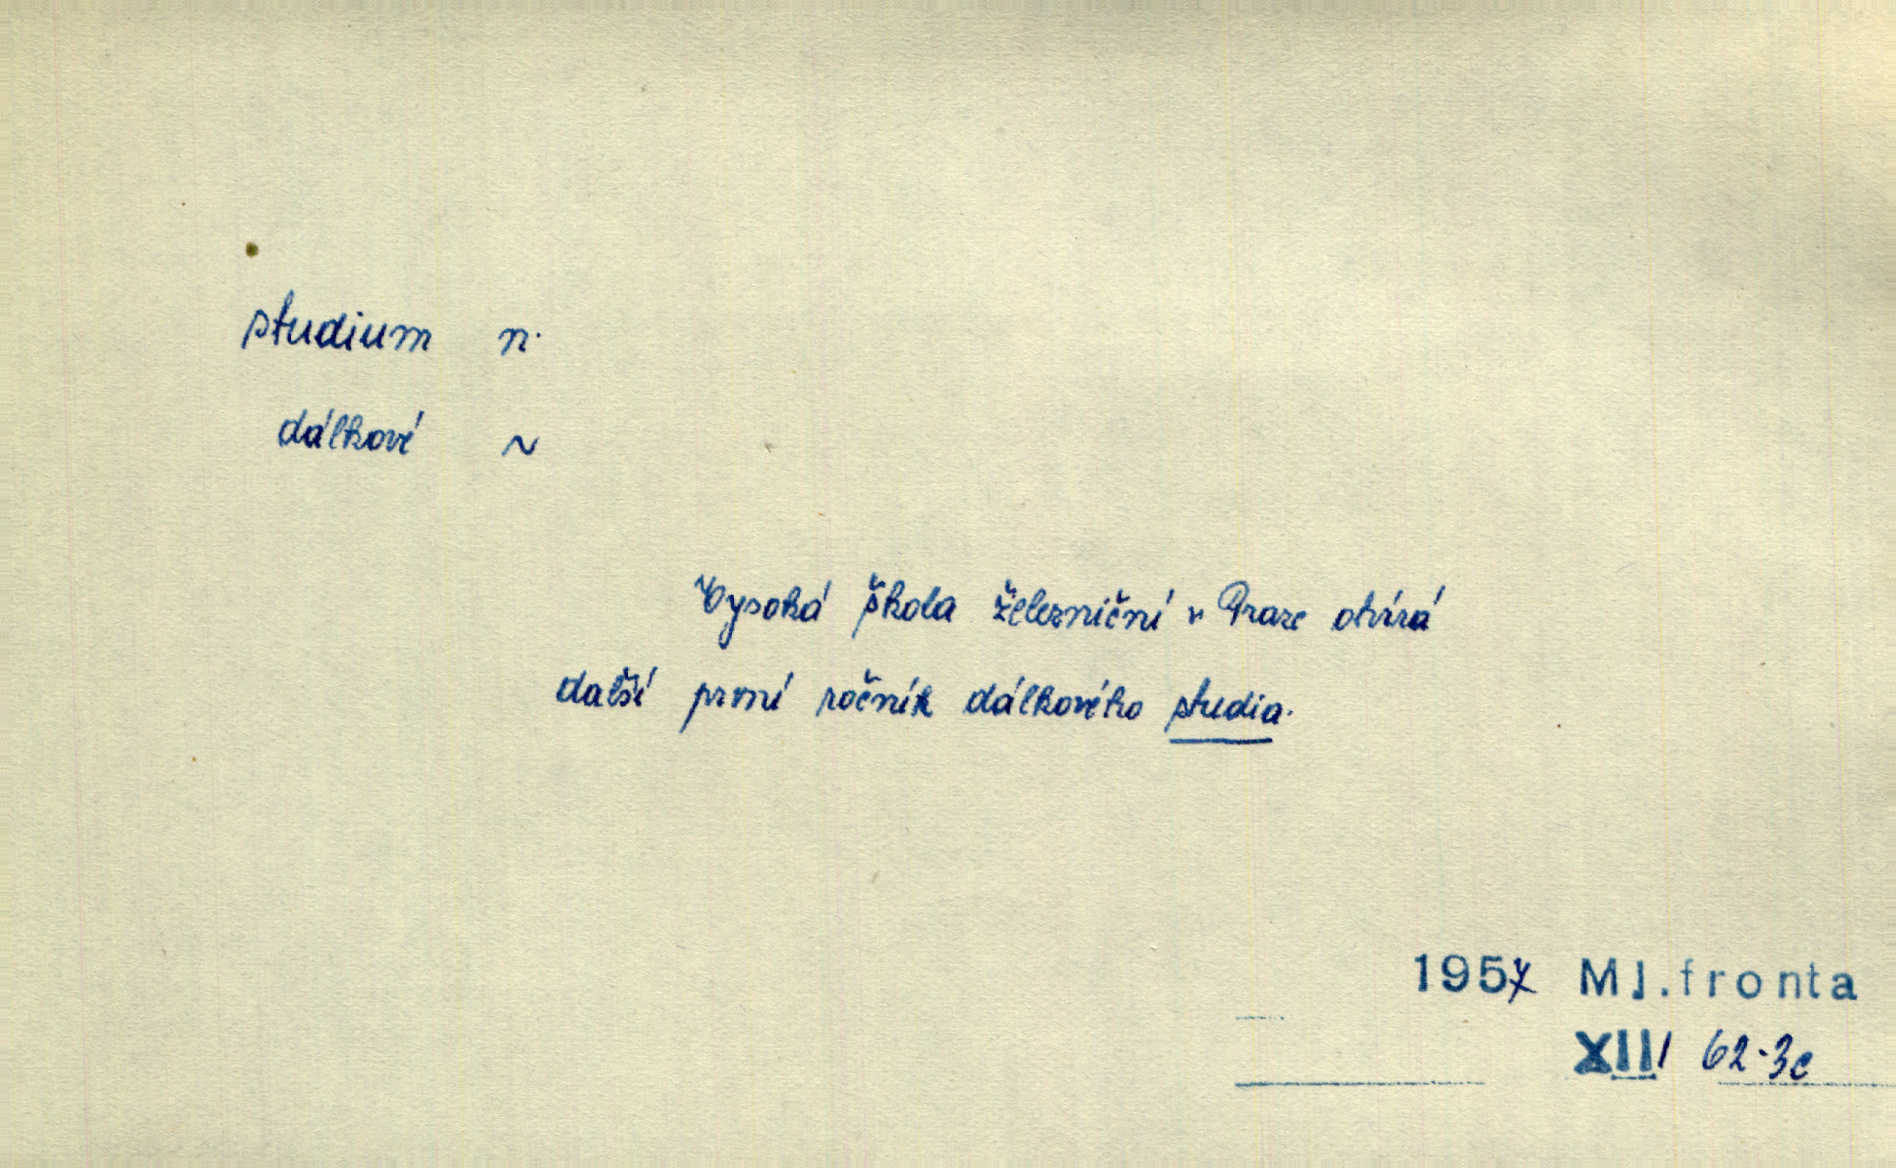 studium n.
dálkové ~
Vysoká škola železniční v Praze otvírá
další první ročník dálkového studia.
1957 Ml.fronta
XIII 62-3c